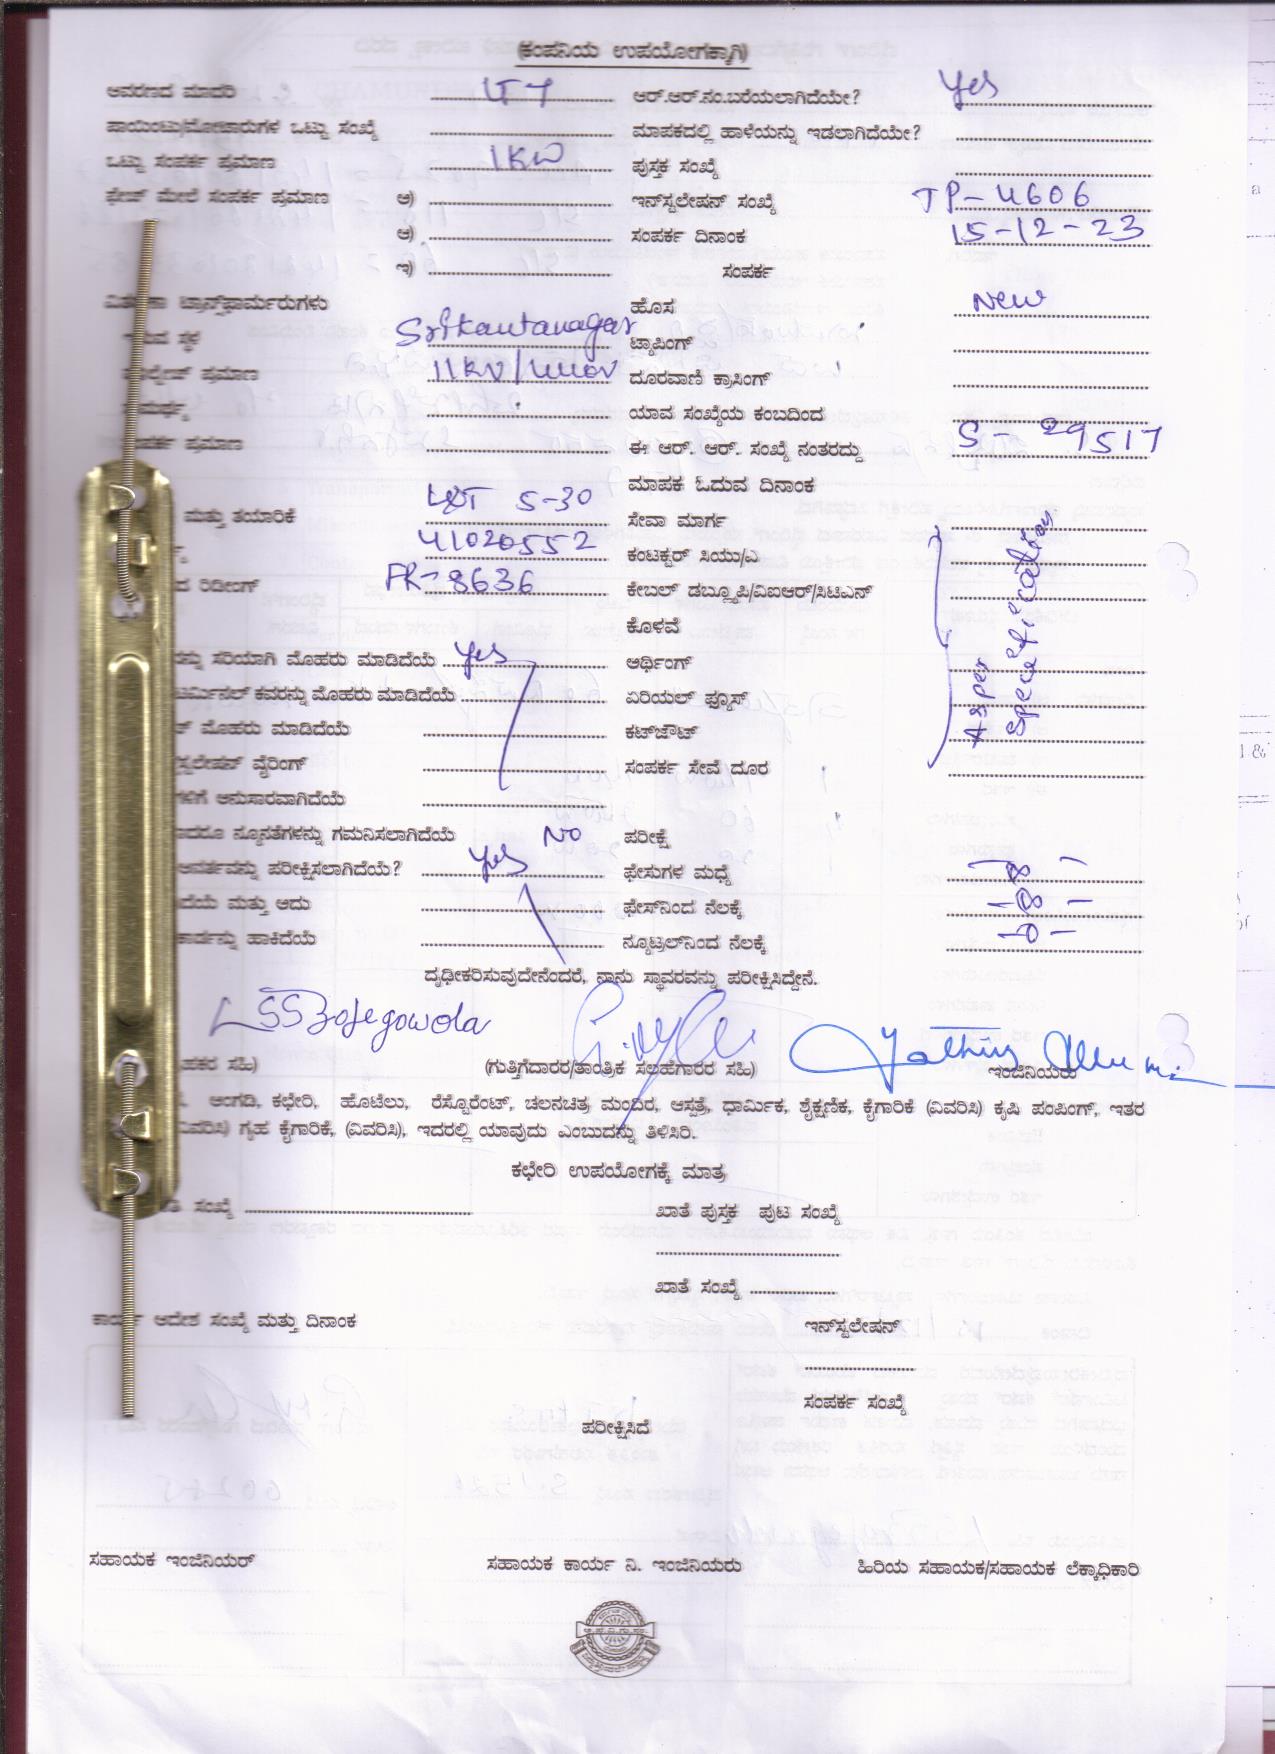 (ಕಂಪನಿಯ ಉಪಯೋಗಕ್ಕಾಗಿ)
ಆವರಣದ ಮಾದರಿ LT7 ಆರ್.ಆರ್.ನಂ.ಬರೆಯಲಾಗಿದೆಯೇ? Yes
ಪಾಯಿಂಟು/ಮೋಟಾರುಗಳ ಒಟ್ಟು ಸಂಖ್ಯೆ ಮಾಪಕದಲ್ಲಿ ಹಾಳೆಯನ್ನು ಇಡಲಾಗಿದೆಯೇ?
ಒಟ್ಟು ಸಂಪರ್ಕ ಪ್ರಮಾಣ 1KW ಪುಸ್ತಕ ಸಂಖ್ಯೆ
ಫೇಜ್ ಮೇಲೆ ಸಂಪರ್ಕ ಪ್ರಮಾಣ ಅ) ಇನ್‌ಸ್ಟಲೇಷನ್ ಸಂಖ್ಯೆ TP-4606
ಆ) ಸಂಪರ್ಕ ದಿನಾಂಕ 15-12-23
ಇ) ಸಂಪರ್ಕ
ಟ್ರಾನ್ಸ್‌ಫಾರ್ಮರುಗಳು ಹೊಸ New
ಸ್ಥಳ Srikantanagar ಟ್ಯಾಪಿಂಗ್
ಪ್ರಮಾಣ 11KV/ ದೂರವಾಣಿ ಕ್ರಾಸಿಂಗ್
ಯಾವ ಸಂಖ್ಯೆಯ ಕಂಬದಿಂದ
ಪ್ರಮಾಣ ಈ ಆರ್. ಆರ್. ಸಂಖ್ಯೆ ನಂತರದ್ದು S-29517
ಮಾಪಕ ಓದುವ ದಿನಾಂಕ
ಮತ್ತು ತಯಾರಿಕೆ L&T 5-30 ಸೇವಾ ಮಾರ್ಗ
41020552 ಕಂಟಕ್ಟರ್ ಸಿಯು/ಎ
ರಿಡೀಂಗ್ FR-8636 ಕೇಬಲ್ ಡಬ್ಲ್ಯೂಪಿ/ವಿಐಆರ್/ಸಿಟಿಎನ್
ಕೊಳವೆ
ಸರಿಯಾಗಿ ಮೊಹರು ಮಾಡಿದೆಯೆ Yes ಅರ್ಥಿಂಗ್
ಟರ್ಮಿನೆಲ್ ಕವರನ್ನು ಮೊಹರು ಮಾಡಿದೆಯೆ ಏರಿಯಲ್ ಫ್ಯೂಸ್
ಮೊಹರು ಮಾಡಿದೆಯೆ ಕಟ್‌ಔಟ್
ವೈರಿಂಗ್ ಸಂಪರ್ಕ ಸೇವೆ ದೂರ
As per
Specification
ಅನುಸಾರವಾಗಿದೆಯೆ
ನ್ಯೂನತೆಗಳನ್ನು ಗಮನಿಸಲಾಗಿದೆಯೆ No ಪರೀಕ್ಷೆ
ಪರೀಕ್ಷಿಸಲಾಗಿದೆಯೆ? Yes ಫೇಸುಗಳ ಮಧ್ಯೆ
ಮತ್ತು ಅದು ಫೇಸ್‌ನಿಂದ ನೆಲಕ್ಕೆ
ಹಾಕಿದೆಯೆ ನ್ಯೂಟ್ರಲ್‌ನಿಂದ ನೆಲಕ್ಕೆ
ದೃಢೀಕರಿಸುವುದೇನೆಂದರೆ, ನಾನು ಸ್ಥಾವರವನ್ನು ಪರೀಕ್ಷಿಸಿದ್ದೇನೆ.
ಸಹಿ) (ಗುತ್ತಿಗೆದಾರರ/ತಾಂತ್ರಿಕ ಸಲಹೆಗಾರರ ಸಹಿ) ಇಂಜಿನಿಯರು
ಅಂಗಡಿ, ಕಛೇರಿ, ಹೊಟೆಲು, ರೆಸ್ಟೊರೆಂಟ್, ಚಲನಚಿತ್ರ ಮಂದಿರ, ಆಸ್ಪತ್ರೆ, ಧಾರ್ಮಿಕ, ಶೈಕ್ಷಣಿಕ, ಕೈಗಾರಿಕೆ (ವಿವರಿಸಿ) ಕೃಷಿ ಪಂಪಿಂಗ್, ಇತರ
ವಿವರಿಸಿ) ಗೃಹ ಕೈಗಾರಿಕೆ, (ವಿವರಿಸಿ), ಇದರಲ್ಲಿ ಯಾವುದು ಎಂಬುದನ್ನು ತಿಳಿಸಿರಿ.
ಕಛೇರಿ ಉಪಯೋಗಕ್ಕೆ ಮಾತ್ರ
ಸಂಖ್ಯೆ ಖಾತೆ ಪುಸ್ತಕ ಪುಟ ಸಂಖ್ಯೆ
ಖಾತೆ ಸಂಖ್ಯೆ
ಕಾರ್ಯ ಆದೇಶ ಸಂಖ್ಯೆ ಮತ್ತು ದಿನಾಂಕ ಇನ್‌ಸ್ಟಲೇಷನ್
ಸಂಪರ್ಕ ಸಂಖ್ಯೆ
ಪರೀಕ್ಷಿಸಿದೆ
ಸಹಾಯಕ ಇಂಜಿನಿಯರ್ ಸಹಾಯಕ ಕಾರ್ಯ ನಿ. ಇಂಜಿನಿಯರು ಹಿರಿಯ ಸಹಾಯಕ/ಸಹಾಯಕ ಲೆಕ್ಕಾಧಿಕಾರಿ